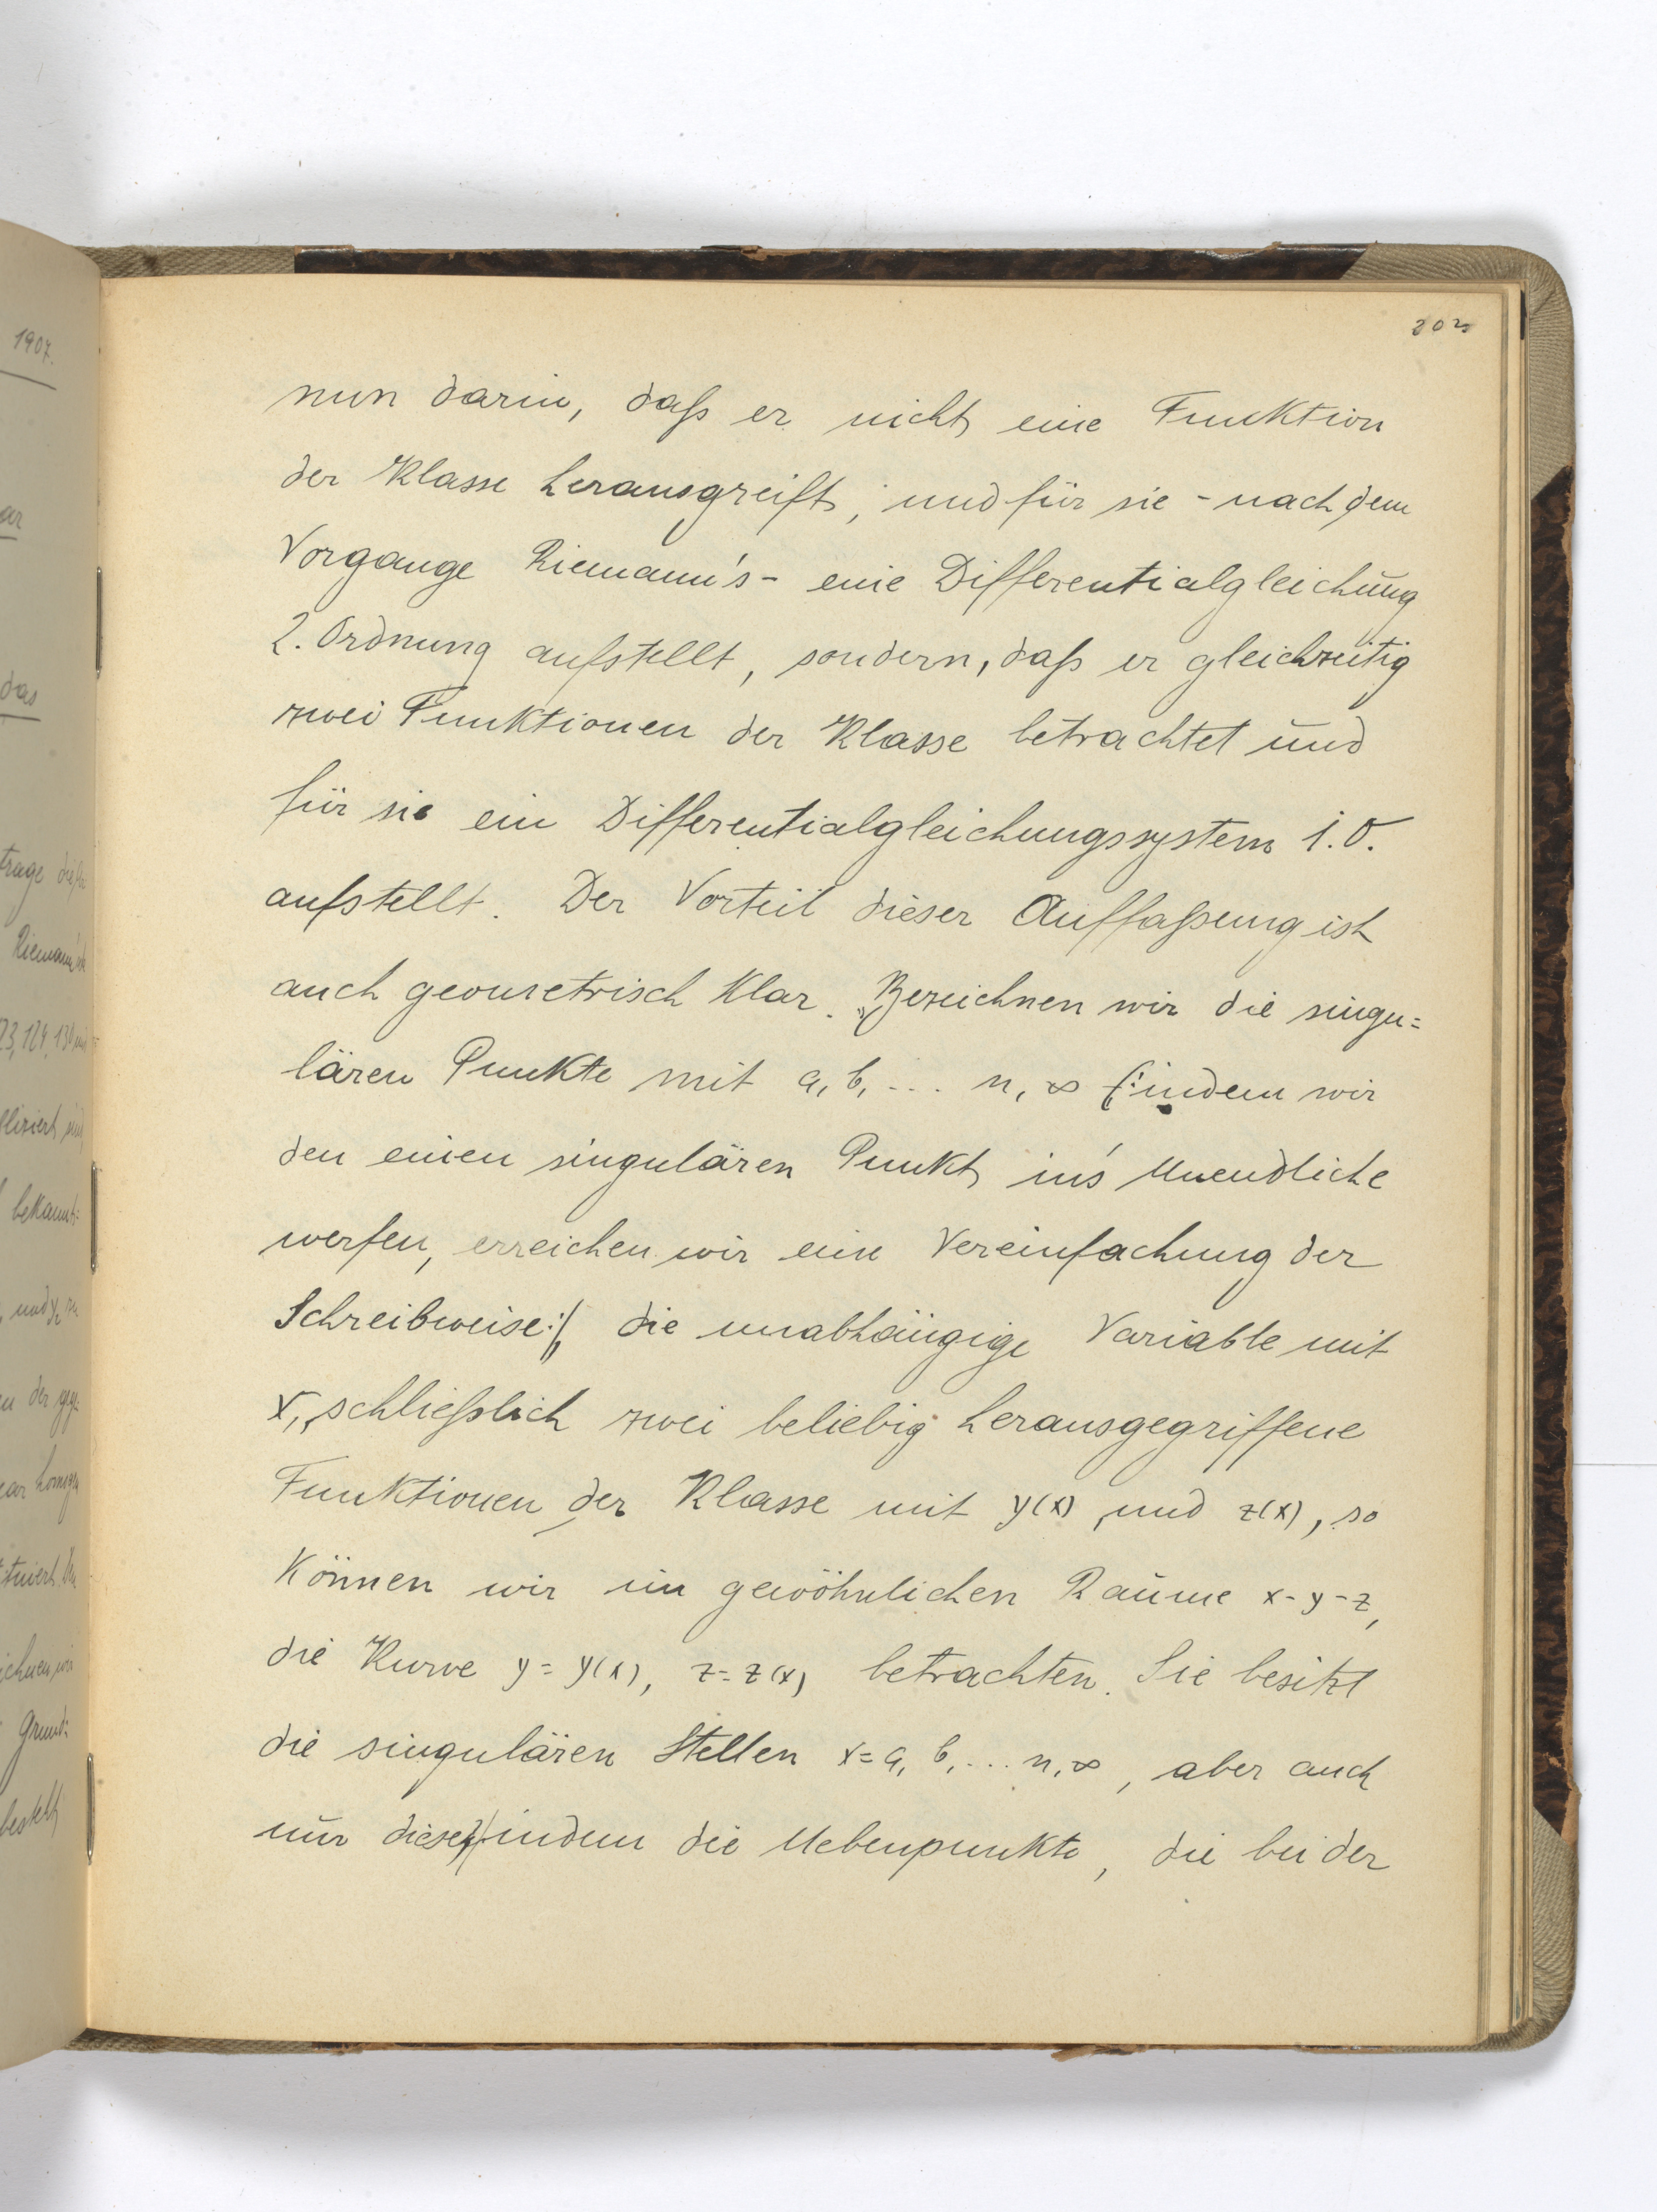 203
nun darin, daß er nicht eine Funktion
der Klasse herausgreift, und für sie - nach dem
Vorgange Riemann's - eine Differentialgleichung
2. Ordnung aufstellt, sondern, daß er gleichzeitig
zwei Funktionen der Klasse betrachtet und
für sie ein Differentialgleichungssystem 1. O.
aufstellt. Der Vorteil dieser Auffaßung ist
auch geometrisch klar. Bezeichnen wir die singu=
lären Punkte mit a, b, ... n, ∞ (: indem wir
den einen singulären Punkt in's Unendliche
werfen, erreichen wir eine Vereinfachung der
Schreibweise :), die unabhängige Variable mit
x, schließlich zwei beliebig herausgegriffene
Funktionen der Klasse mit y(x) und z(x), so
können wir im gewöhnlichen Raume x-y-z,
die Kurve y = y(x), z = z(x) betrachten. Sie besitzt
die singulären Stellen x = a, b, ... n, ∞, aber auch
nur diese, indem die Nebenpunkte, die bei der
1907.
ar
das
trage
Riemann
123, 124, 130
bekannt:
und y₂
Grund: